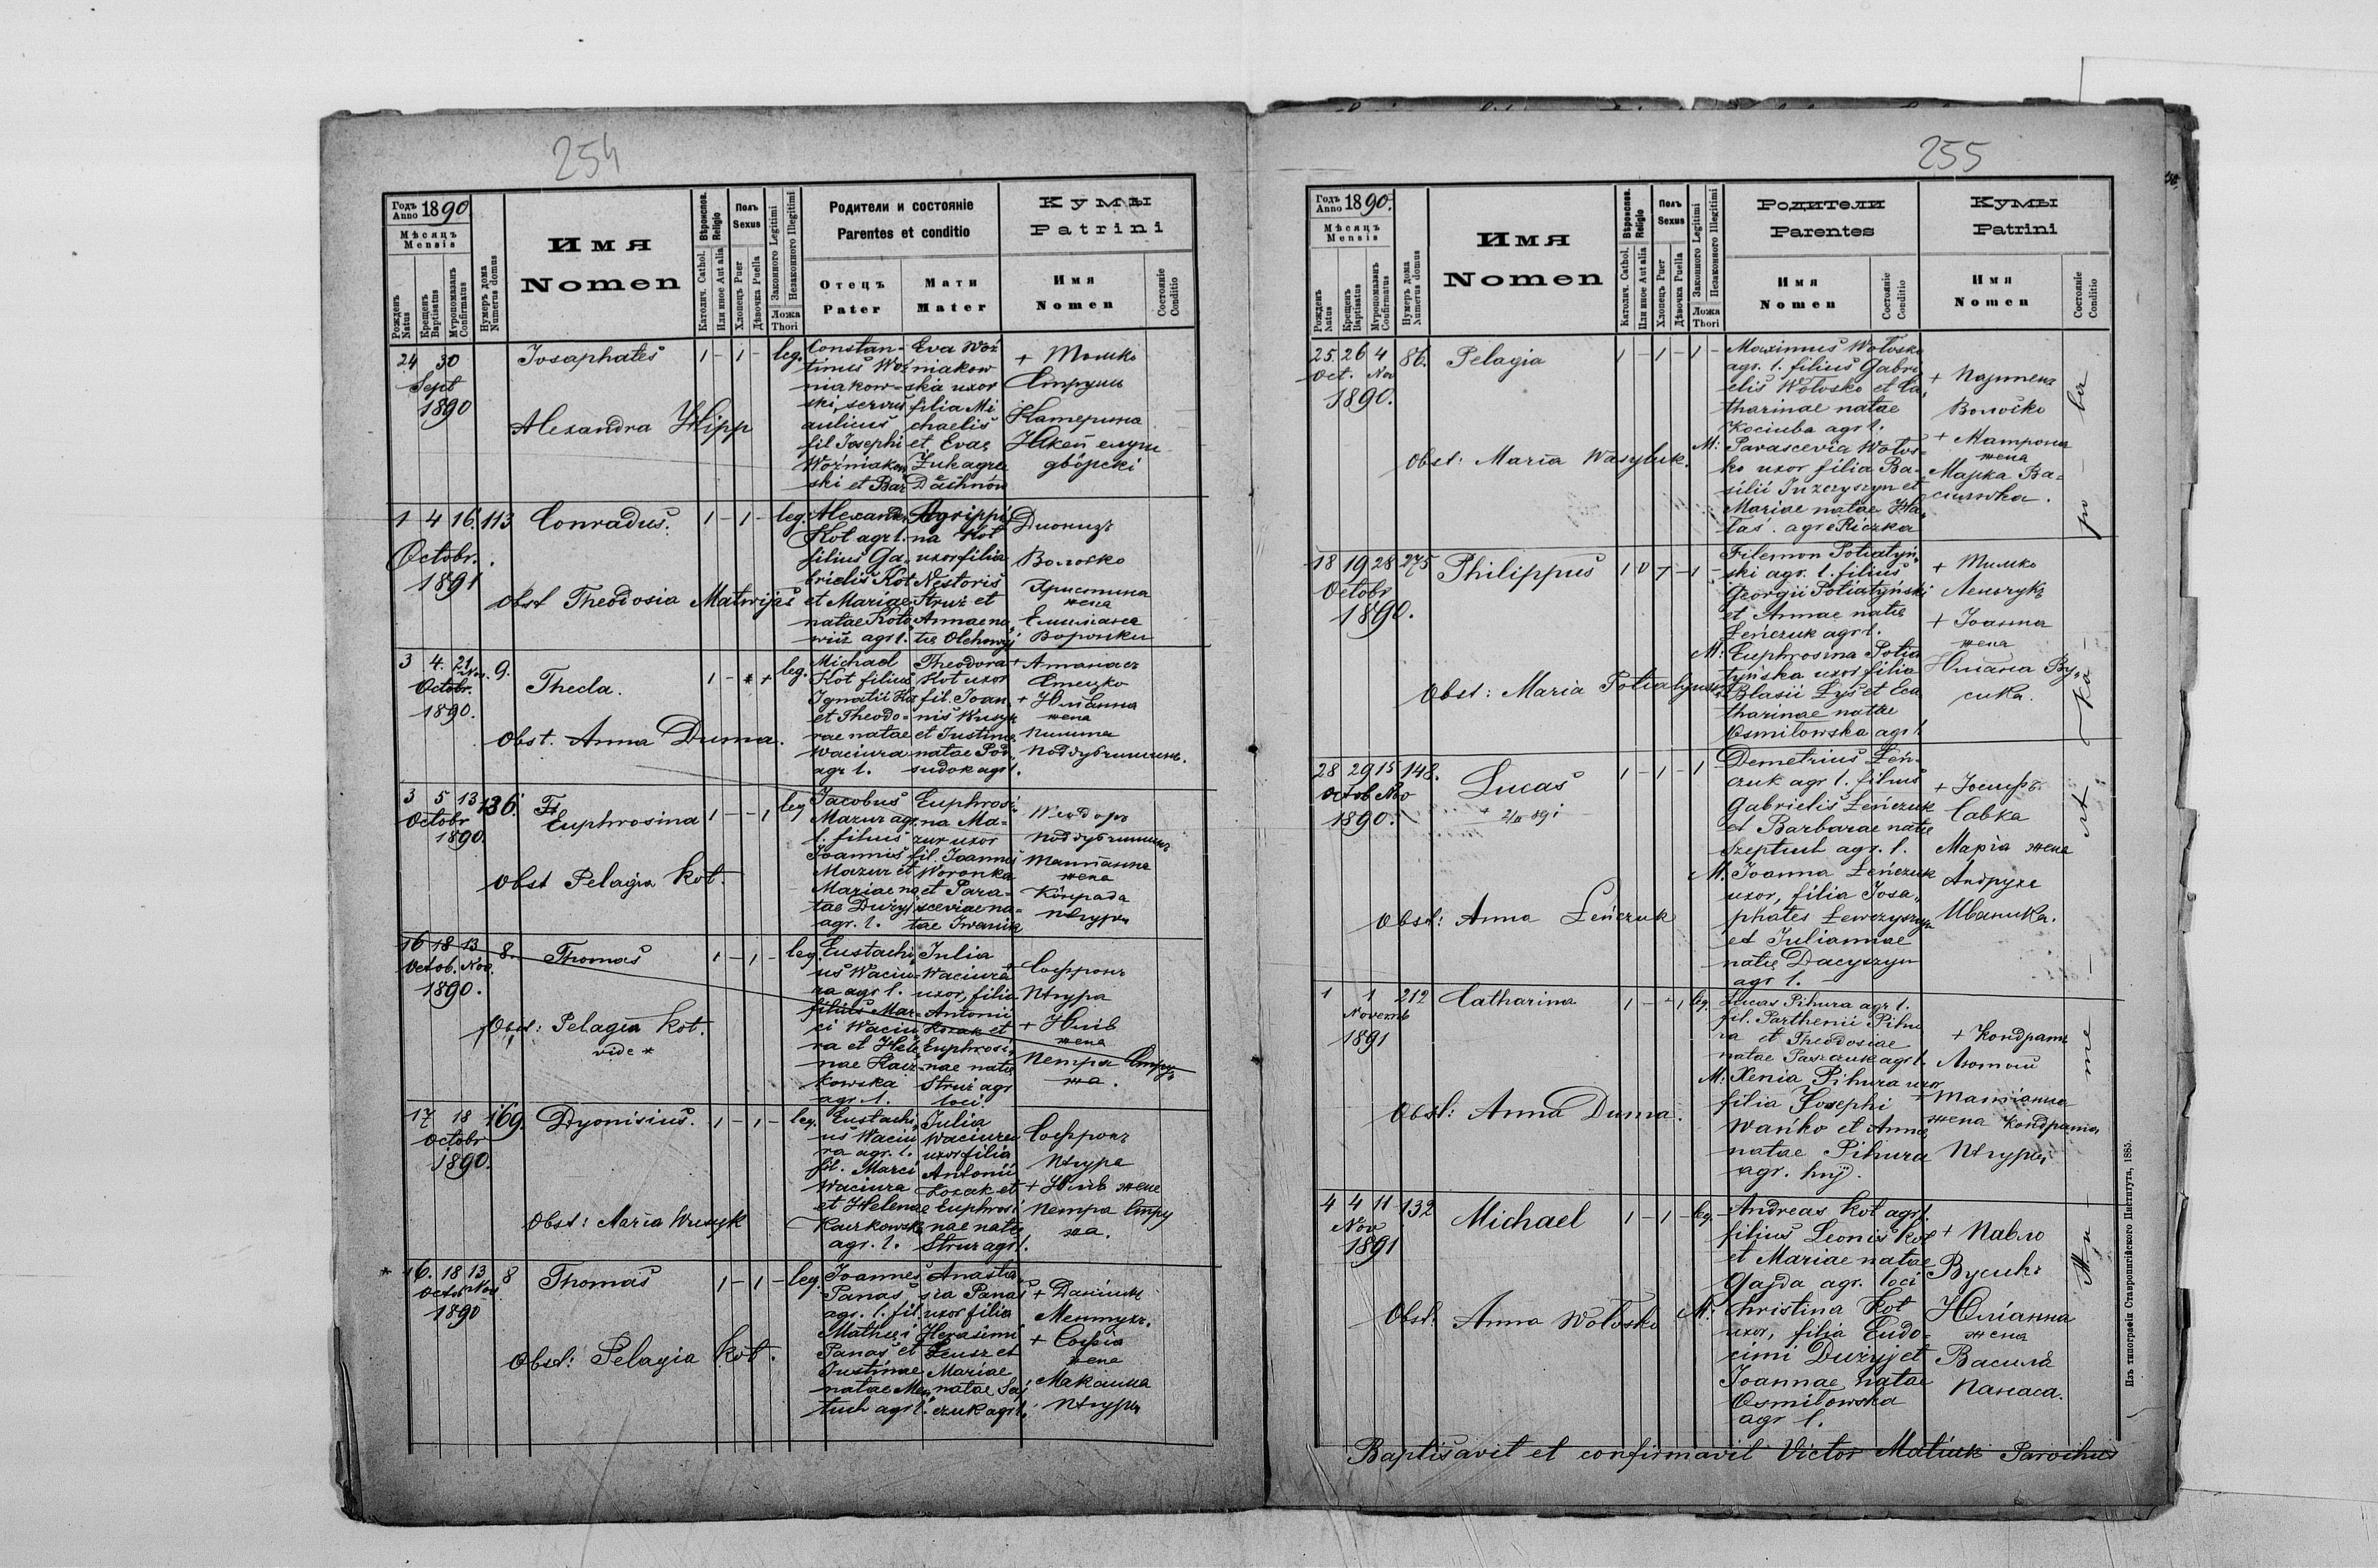 254
Годъ Anno 1890
Мѣсяцъ
Mensis
Рожденъ Natus
Крещенъ Baptisatus
Мѵропомазанъ Confirmatus
Нумеръ дома Numerus domus
Имя
Nomen
Вѣроиспов. Religio
Католич. Cathol.
Или иное Aut alia
Полъ
Sexus
Хлопецъ Puer
Дѣвочка Puella
Законного Legitimi
Незаконного Illegitimi
Ложа
Thori
Родители и состояніе
Parentes et conditio
Отецъ
Pater
Мати
Mater
Кумы
Patrini
Имя
Nomen
Состояніе
Conditio
24 30
Sept
1890
Josaphates
1 - 1 -
leg.
Alexandra Hipp
Constan-
tinus Woź
niakow-
ski, servus
aulicus
fil Josephi
Woźniakow
ski et Bar
Eva Woź
niakow
ska uxor
filia Mi
chaelis
et Evae
Żuk agre
Dashnów
+ Тошко
Катерина
дворскі
1 4 16. 113
Octobr.
1891
Conradus.
1 - 1 -
leg.
Obst Theodosia Matwijas
Alexander
Kot agr l.
filius Ga-
brielis Kot
et Mariae
natae Koto
wicz agr l.
Agrippi
na Kot
uxor filia
Nestoris
Struż et
Annae na
Діонизъ
Волоско
Христина
жена
Еміліана
Воронки
3 4. 21 Nov. 9.
Octobr.
1890.
Thecla.
leg.
Obst. Anna Duma.
Michael
Kot filius
Ignatii Ko
et Theodo-
rae natae
Waciura
agr l.
Theodora
Kot uxor
fil. Joan
nis Wusyk
et Justinae
natae Pod
sudok agr l.
+ Атанасъ
Стецко
+ Юліанна
жена
Поддубчишинъ.
3 5 13 136.
Octobr
1890.
Euphrosina
1 - - 1
leg
Obst Pelagia Kot.
Jacobus
Mazur agr.
l. filius
Joannis
Mazur et
Mariae na
tae Dużyj
agr. l.
Euphrosi
na Ma-
zur uxor
fil. Joannis
Woronka
et Para-
sceviae na-
tae Iwanik
Ѳеодоръ
Поддубчишинъ
Матіанна
жена
Конрада
Пігура
16 18 13 8.
Octob. Nov.
1890.
Thomas
1 - 1 -
leg.
Obst: Pelagia Kot.
vide *
Eustachi
us Waciu-
ra agr l.
filius Mar-
ci Waciu
ra et Hele
nae Kacz-
kowska
agr. l.
Julia
Waciura
uxor, filia
Antonii
Kozak et
Euphrosi
nae natae
Struż agr
loci.
Софронъ
Пігура
+ Юлія
жена
Петра Стру
жа.
17 18 169.
Octobr
1890.
Dyonisius.
1 - 1 -
leg.
Obst: Maria Wusyk
Eustachi
us Waciu
ra agr. l.
fil. Marci
Waciura
et Helenae
Kaczkowska
agr. l.
Julia
Waciura
uxor filia
Antonii
Kozak et
Euphrosi
nae natae
Struż agr l.
Софронъ
Пігура
+ Юлія жена
Петра Стру
жа.
* 16. 18 13 8
Octob Nov.
1890
Thomas
1 - 1 -
leg.
Obst: Pelagia Kot.
Joannes
Panas
agr. l. fil.
Mathei
Panas et
Justinae
natae Men
tuch agr l.
Anasta
sia Panas
uxor filia
Herasimi
Leusz et
Mariae
natae Saj
czuk agr l.
+ Даніилъ
Ментухъ.
+ Софія
жена
Максима
Пігура
255
Годъ Anno 1890.
Мѣсяцъ
Mensis
Рожденъ Natus
Крещенъ Baptisatus
Мѵропомазанъ Confirmatus
Нумеръ дома Numerus domus
Имя
Nomen
Вѣроиспов. Religio
Католич. Cathol.
Или иное Aut alia
Полъ
Sexus
Хлопецъ Puer
Дѣвочка Puella
Законного Legitimi
Незаконного Illegitimi
Ложа
Thori
Родители
Parentes
Имя
Nomen
Состояніе
Conditio
Кумы
Patrini
Имя
Nomen
Состояніе
Conditio
25. 26 4 86.
Oct. Nov
1890.
Pelagia
1 - 1 - 1 -
Obst: Maria Wasyluk.
Maximus Wołosko
agr. l. filius Gabri
elis Wołosko et Ca
tharinae natae
Kociuba agr l.
M: Parascevia Wołos-
ko uxor filia Ba-
silii Juzczyszyn et
Mariae natae Ha
łas. agr e Riczka
+ Партенъ
Волоско
+ Матрона
жена
Марка Ва-
силюка.
18 19 28 275
Octobr
1890.
Philippus
Obst: Maria Potiatynska
Filemon Potiatyń
ski agr. l. filius
Georgii Potiatyński
et Annae natae
Leńczuk agr l.
M: Euphrosina Potia
tyńska uxor filia
Blasii Łys et Ca
tharinae natae
Osmiłowska agr l
+ Тимко
Леньчукъ
+ Іоанна
жена
Юліана Ву
сика.
28 29 15 148.
Octob Nov
1890.
Lucas
1 - 1 - 1 -
Obst: Anna Leńczuk
Demetrius Leń-
czuk agr l. filius
Gabrielis Leńczuk
et Barbarae natae
Szeptuch agr. l.
M. Joanna Leńczuk
uxor, filia Josa-
phates Lewczyszyn
et Juliannae
natae Dacyszyn
agr l.
+ Іосифъ
Савка
Марія жена
Андрука
Иваника.
1 1 212
Novemb
1891
Catharina
leg.
Obst: Anna Duma.
Lucas Pihura agr l.
fil. Parthenii Pihu
ra et Theodosiae
natae Paszczuk agr l.
M: Xenia Pihura uxor
filia Josephi
Wańko et Annae
natae Pihura
agr. huj.
+ Кондратъ
Лютый
+ Матіанна
жена Кондрата
Пігура
4 4 11 132
Nov
1891
Michael
1 - 1 -
leg.
Obst: Anna Wołosko
Andreas Kot agr l.
filius Leonis Kot
et Mariae natae
Gajda agr. loci
M: Christina Kot
uxor, filia Eudo-
cimi Dużyj et
Joannae natae
Osmiłowska
agr l.
+ Павло
Вусикъ
Юліанна
жена
Василя
Панаса.
Baptisavit et confirmavit Victor Matiuk Parochus
Изъ типографіи Ставропигійского Института, 1885.